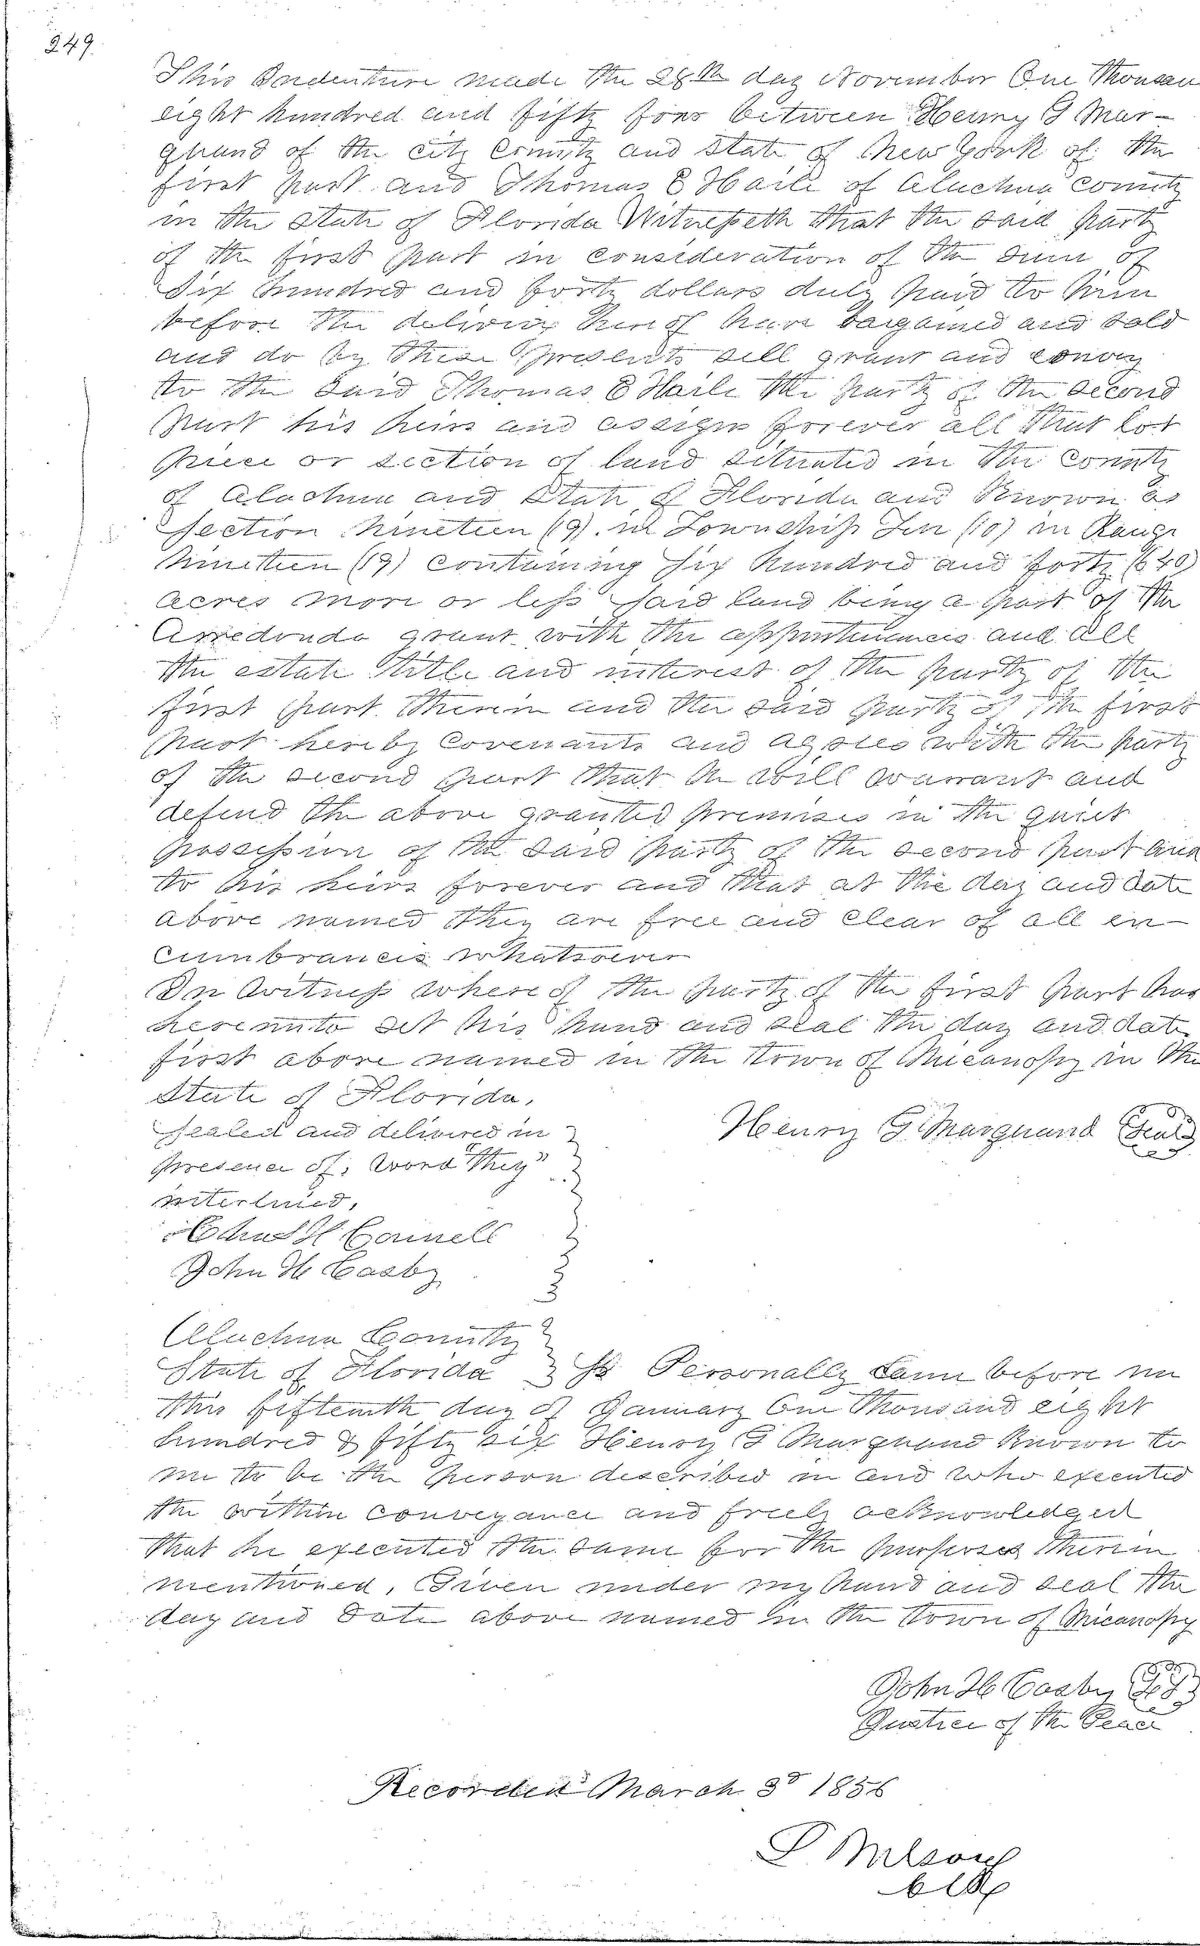 249.
This Indenture made the 28th day November One Thousan
eight hundred and fifty four between Henry G Mar-
quand of the city County and State of New York of the
first part and Thomas E Haile of Alachua County
in the State of Florida Witnesseth that the said party
of the first part in consideration of the sum of
Six hundred and forty dollars duly paid to him
before the delivery hereof have bargained and sold
and do by these presents sell grant and convey
to the said Thomas E Haile the party of the second
part his heirs and assigns forever all that lot
piece or section of land situated in the County
of Alachua and State of Florida and Known as
Section Nineteen (19). in Township Ten (10) in Range
Nineteen (19) containing Six hundred and forty (640)
acres more or less said land being a part of the
Arredondo grant with the appurtenances and all
the estate title and interest of the party of the
first part therein and the said party of the first
part hereby covenants and agrees with the party
of the second part that he will warrant and
defend the above granted premises in the quiet
possession of the said party of the second part and
to his heirs forever and that at the day and date
above named they are free and clear of all en-
cumbrances whatsoever
In Witness where of the party of the first part has
hereunto set his hand and seal the day and date
first above named in the Town of Micanopy in the
State of Florida.
Sealed and delivered in
presence of, word "they"
interlined,
Henry G Marquand (Seal)
H Connell
John H Casby
Alachua County
State of Florida } Ss Personally came before me
this fifteenth day of January One Thousand eight
hundred & fifty six Henry G Marquand Known to
me to be the person described in and who executed
the within conveyance and freely acknowledged
that he executed the same for the purposes therein
mentioned. Given under my hand and seal the
day and date above named in the Town of Micanopy
John H Casby
Justice of the Peace
Recorded March 3d 1856
P Wilson
Clk